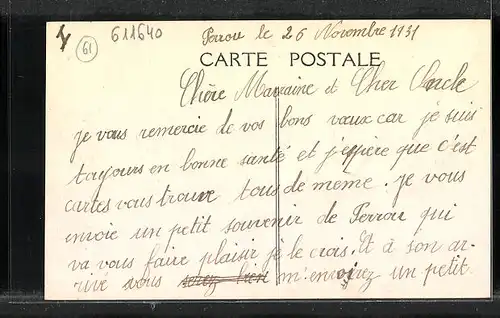 611640
61
Perrou le 26 Novembre 1931
CARTE POSTALE
Chère Marraine et Cher Oncle
je vous remercie de vos bons vœux car je suis
toujours en bonne santé et j'espère que c'est
cartes vous trouve tous de même. je vous
envoie un petit souvenir de Perrou qui
va vous faire plaisir je le crois. Et à son ar-
rivé vous serez bien m'enverez un petit